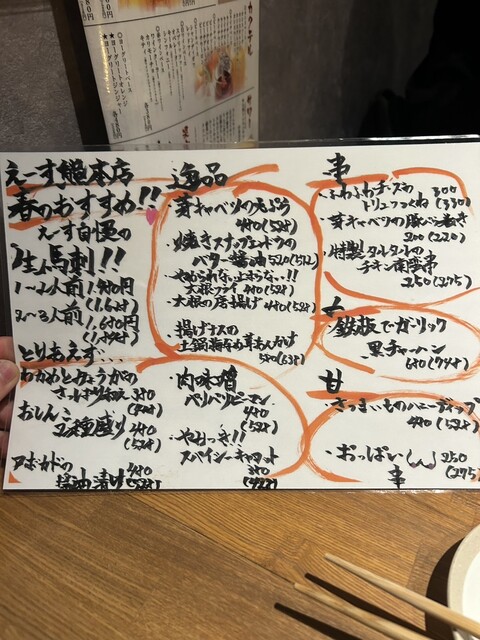 えーす熊本店
春のおすすめ!!
えーす自慢の
生馬刺!!
1〜2人前 1,480円
(1,628)
2〜3人前
(1,848)
とりもえず…
わかめとみょうがの
さっぱり和え 380
おしんこ
3種盛り 480
(528)
アボカドの
醤油漬け 480
(528)
逸品
芽キャベツの天ぷら
480(528)
・焼きスナップエンドウの
バター醤油 520(572)
・やめられない止まらない!!
大根フライ 480(528)
・大根の唐揚げ 480(528)
・揚げナスの
土鍋梅なめ茸あんかけ
580(638)
肉味噌
バリバリピーマン
480
(528)
・やみつき!!
スパイシーキャロット
串
・ふわふわチーズの
トリュフつくね 300
(330)
・芽キャベツの豚バラ巻き
200(220)
・特製タルタルの
チキン南蛮串
250(275)
・鉄板でガーリック
黒チャーハン
680(748)
甘
・さつまいものハニーディップ
480(528)
・おっぱい 250
(275)
串